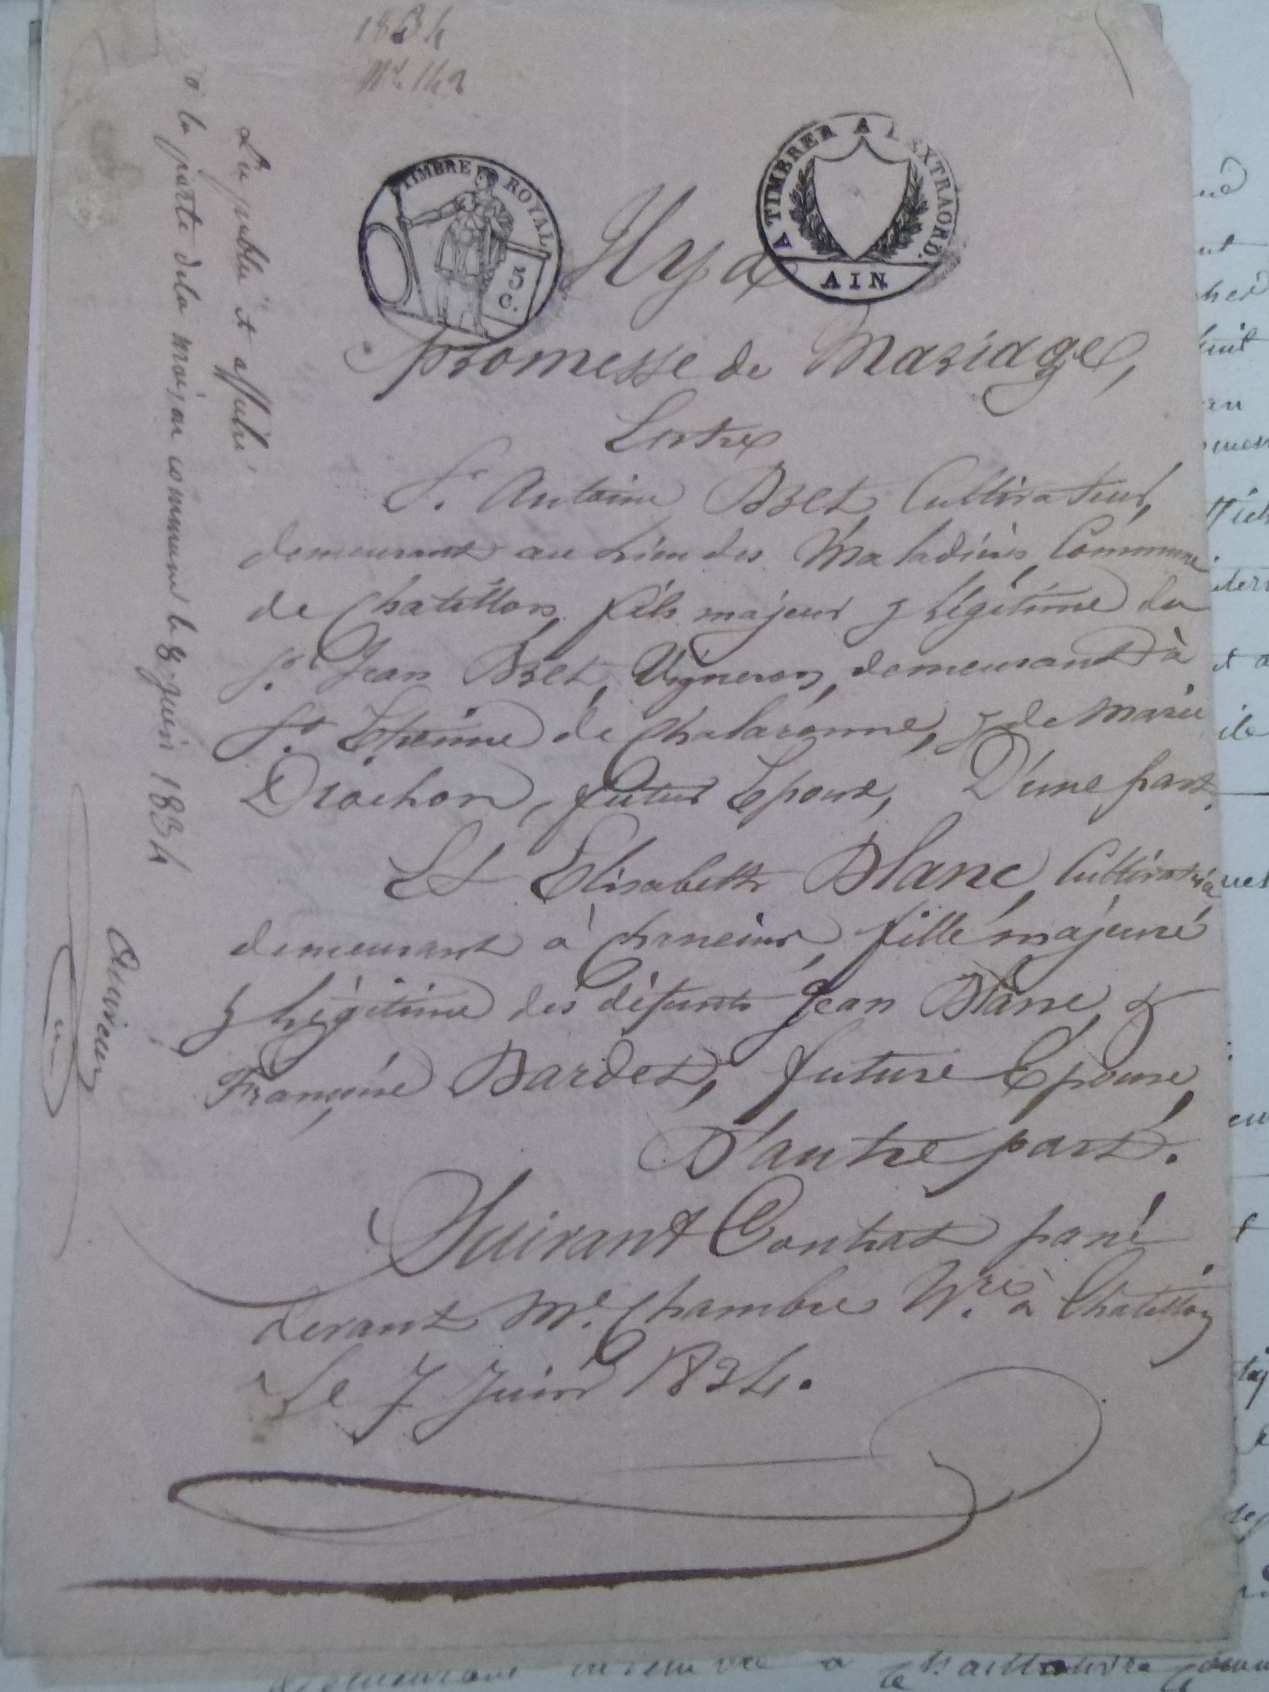 1834
N° 142
TIMBRE ROYAL
35 C.
A TIMBRER A L'EXTRAORD.
AIN
Il y a
promesse de Mariage,
Entre
Sr. Antoine Bret, Cultivateur,
demeurant au lieu des Maladières, Commune
de Chatillon, fils majeur & légitime du
Sr. Jean Bret, Vigneron, demeurant à
St. Etienne de Chalaronne, & de Marie
Drochon, futur Epoux, D'une part.
Et Elisabeth Blanc, Cultivatrice,
demeurant à Chaneins, fille majeure
& légitime des défunts Jean Blanc &
Françoise Bardet, future Epouse,
D'autre part.
Suivant Contrat passé
devant Me. Chambre Nre. à Chatillon
Le 7 Juin 1834.
Lu publié et affiché
à la porte de la maison commune le 8 juin 1834